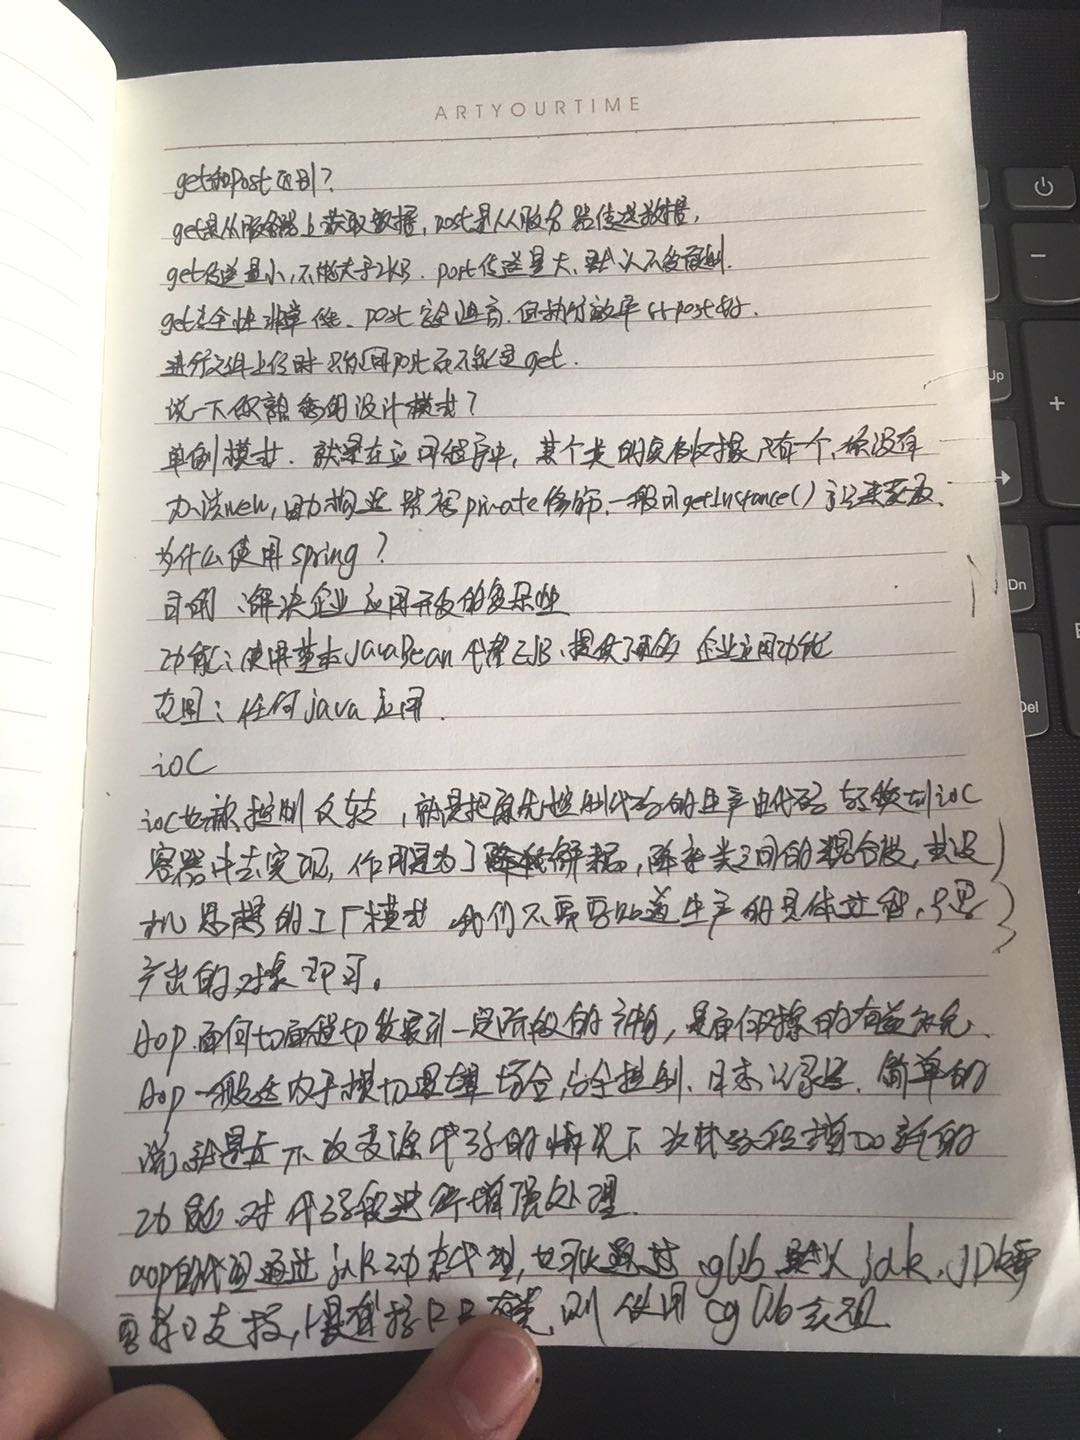 ARTYOURTIME
get和post区别?
get是从服务器上获取数据,post是从服务器传送数据,
get传送量小,不能大于2KB. post传送量大,默认不受限制.
get安全性非常低、post安全性高.但执行效率比post好.
进行文件上传时只能用post而不能是get.
说一下你熟悉的设计模式?
单例模式.就是在应用程序中,某个类的实例对象只有一个,你没有
办法new,因为构造器被private修饰,一般用getInstance()方法来获取.
为什么使用spring?
目的:解决企业应用开发的复杂性
功能:使用基本JavaBean代替EJB、提供了更多企业应用功能
范围:任何java应用.
ioC
ioC也被控制反转,就是把原先控制代码的生产由代码转换到ioC
容器中去实现,作用是为了解耦,降低类之间的耦合度,其设
计思想的工厂模式 我们不需要知道生产的具体过程,只要
产出的对象即可。
Aop.面向切面,是面向对象的有益补充.
Aop一般适用于横切逻辑场合,安全控制、日志记录.简单的
说,就是在不改变源代码的情况下 增加新的
功能.对代码段进行增强处理.
aop的代理通过jdk动态代理,也可以通过cglib 默认jdk.JDK需
要接口支持,如果没有接口 则使用cglib实现